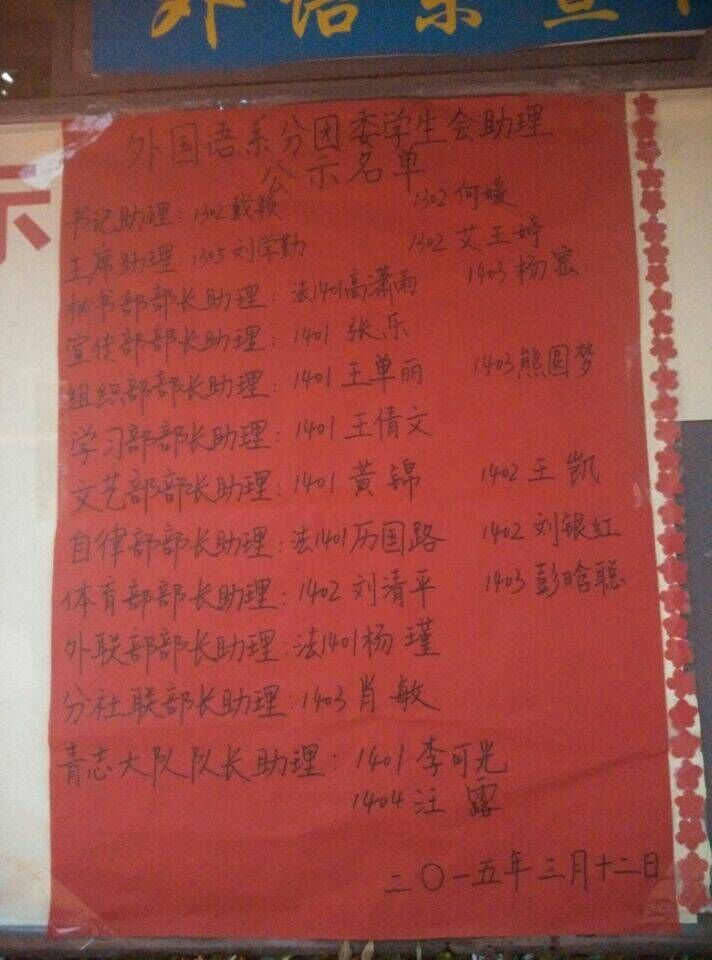 外语系宣
示
外国语系分团委学生会助理
公示名单
书记助理：1302戴颖 1302何媛
主席助理：1305刘学勤 1302艾王婷
秘书部部长助理：法1401高潇雨 1403杨宏
宣传部部长助理：1401 张乐
组织部部长助理：1401王单丽 1403熊圆梦
学习部部长助理：1401王倩文
文艺部部长助理：1401黄锦 1402王凯
自律部部长助理：法1401历国路 1402刘银红
体育部部长助理：1402刘清平 1403彭晗聪
外联部部长助理：法1401杨瑾
分社联部长助理：1403肖敏
青志大队队长助理：1401李可光
1404汪露
二〇一五年三月十二日